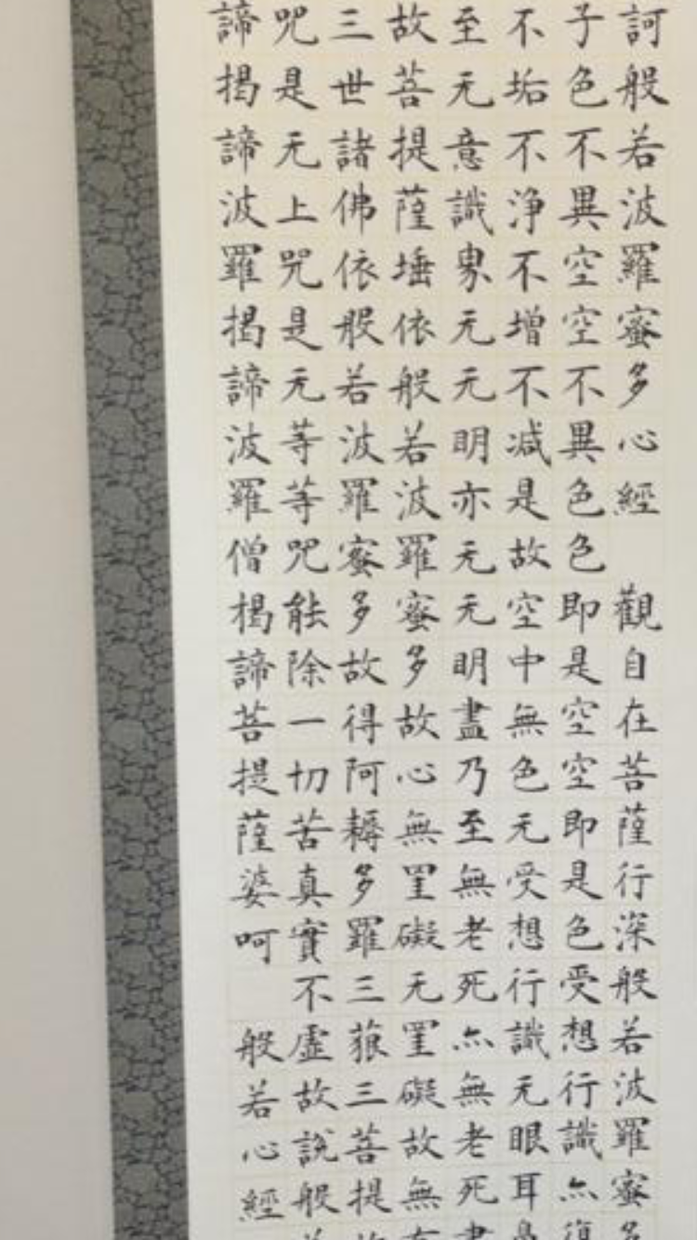 訶般若波羅蜜多心經 觀自在菩薩行深般若波羅蜜多
子色不異空空不異色色即是空空即是色受想行識亦復
不垢不淨不增不减是故空中無色无受想行識无眼耳鼻
至无意識界无无明亦无无明盡乃至無老死亦無老死盡
故菩提薩埵依般若波羅蜜多故心無罣礙无罣礙故無有
三世諸佛依般若波羅蜜多故得阿耨多羅三藐三菩提故
咒是无上咒是无等等咒能除一切苦真實不虛故說般若
諦揭諦波羅揭諦波羅僧揭諦菩提薩婆呵 般若心經